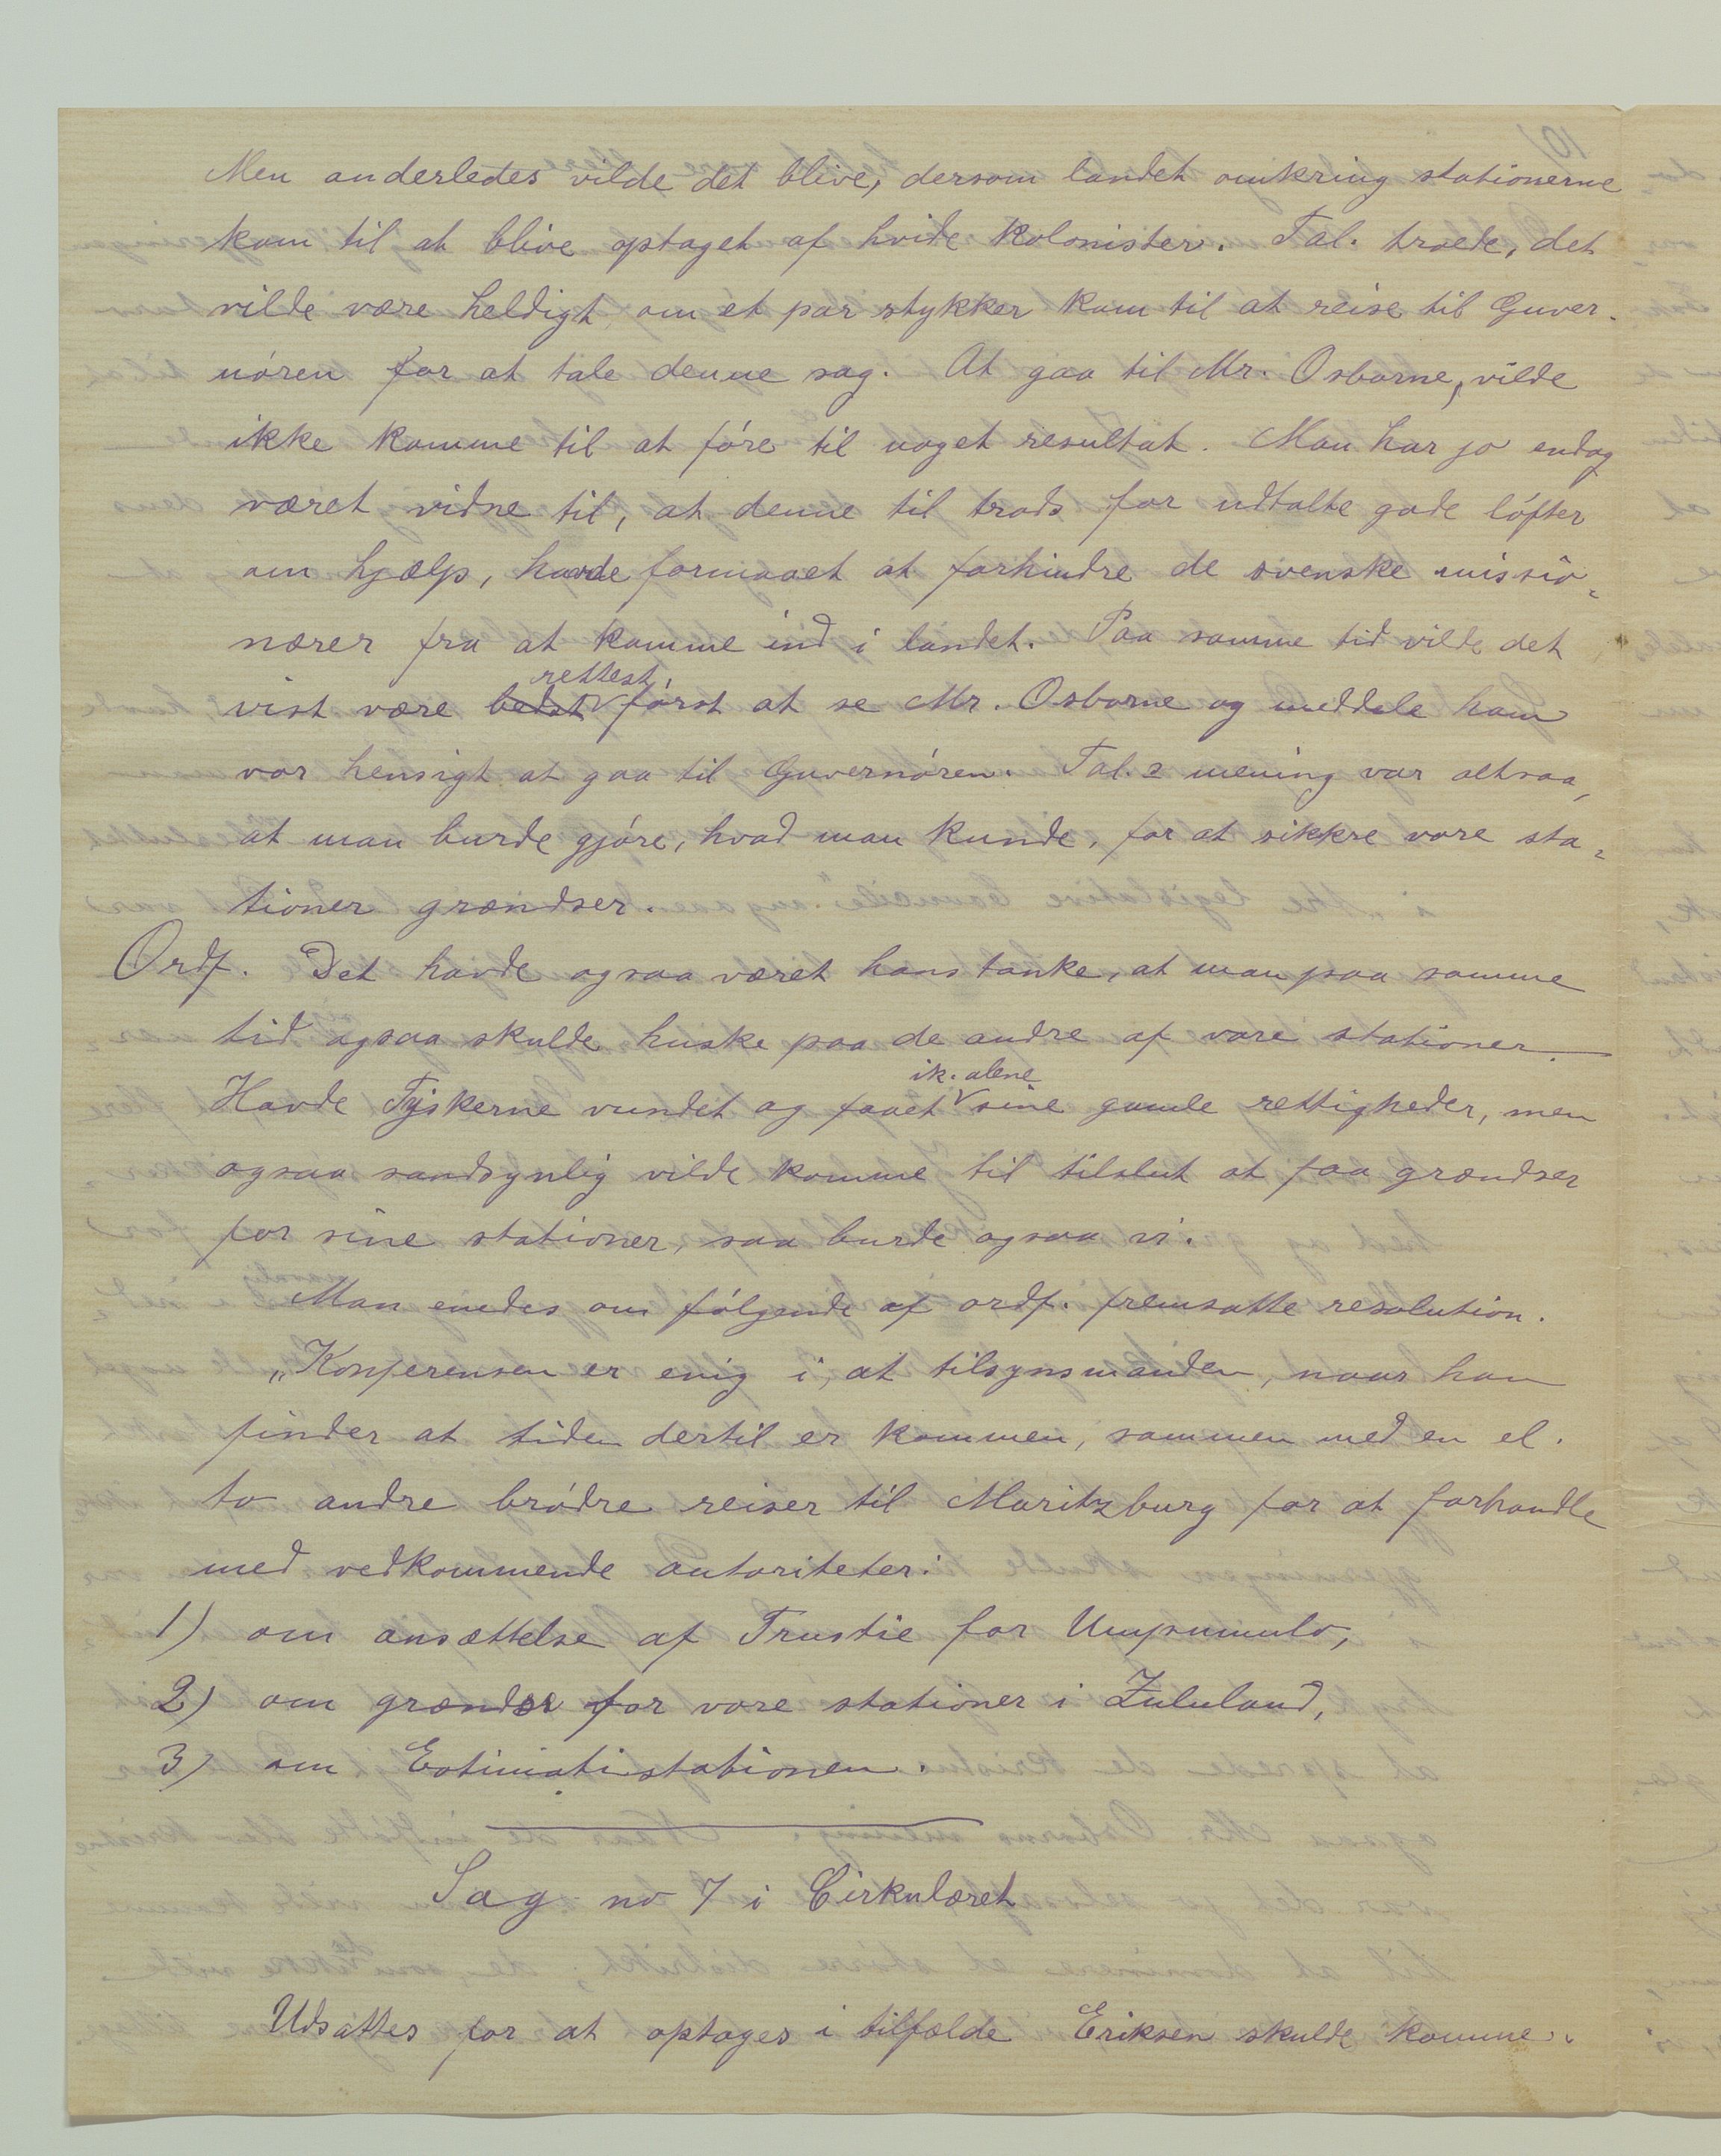 Men anderledes vilde det blive, dersom landet omkring stationerne
kom til at blive optaget af hvide kolonister. Tal. troede, det
vilde være heldigt om et par stykker kom til at reise til Guver-
nóren for at tale denne sag. At gaa til Mr. Osborne, vilde
ikke komme til at fóre til noget resultat. Man har jo endog
været vidne til, at denne til trods for udtalte gode lófter
om hjælp, havde formaaet at forhindre de svenske missio-
nærer fra at komme ind i landet. Paa samme tid vilde det
vist være bedst rettest, fórst at se Mr. Osborne og meddele ham
vor hensigt at gaa til Guvernóren. Tal.s mening var altsaa,
at man burde gjóre, hvad man kunde, for at sikkre vore sta-
tioner grændser.
Ordf. Det havde ogsaa været hans tanke, at man paa samme
tid ogsaa skulde huske paa de andre af vore stationer.
Havde Tyskerne vundet og faaet ik. alene sine gamle rettigheder, men
ogsaa sandsynlig vilde komme til tilslut at faa grændser
for sine stationer, saa burde ogsaa vi.
Man enedes om fólgende af ordf. fremsatte resolution.
„Konferensen er enig i, at tilsynsmanden, naar han
finder at tiden dertil er kommen, sammen med en el.
to andre bródre reiser til Maritzburg for at forhandle
med vedkommende autoriteter:
1) om ansættelse af Trustie for Umpumulo,
2) om grændser for vore stationer i Zululand,
3) om Eotimatistationen.
Sag no 7 i Cirkulæret
Udsattes for at optages i tilfælde Eriksen skulde komme.